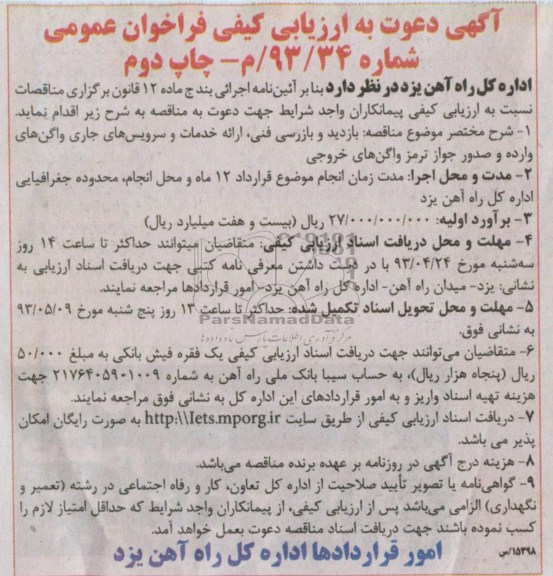 آگهی دعوت به ارزیابی کیفی فراخوان عمومی
شماره ۹۳/۳۴/م- چاپ دوم
اداره کل راه آهن یزد در نظر دارد بنا بر آئین‌نامه اجرائی بند ج ماده ۱۲ قانون برگزاری مناقصات
نسبت به ارزیابی کیفی پیمانکاران واجد شرایط جهت دعوت به مناقصه به شرح زیر اقدام نماید.
۱- شرح مختصر موضوع مناقصه: بازدید و بازرسی فنی، ارائه خدمات و سرویس‌های جاری واگن‌های
وارده و صدور جواز ترمز واگن‌های خروجی
۲- مدت و محل اجرا: مدت زمان انجام موضوع قرارداد ۱۲ ماه و محل انجام، محدوده جغرافیایی
اداره کل راه آهن یزد
۳- برآورد اولیه: ۲۷/۰۰۰/۰۰۰/۰۰۰ ریال (بیست و هفت میلیارد ریال)
۴- مهلت و محل دریافت اسناد ارزیابی کیفی: متقاضیان میتوانند حداکثر تا ساعت ۱۴ روز
سه‌شنبه مورخ ۹۳/۰۴/۲۴ با در دست داشتن معرفی نامه کتبی جهت دریافت اسناد ارزیابی به
نشانی: یزد- میدان راه آهن- اداره کل راه آهن یزد- امور قراردادها مراجعه نمایند.
۵- مهلت و محل تحویل اسناد تکمیل شده: حداکثر تا ساعت ۱۳ روز پنج شنبه مورخ ۹۳/۰۵/۰۹
به نشانی فوق.
ParsNamadData
۶- متقاضیان می‌توانند جهت دریافت اسناد ارزیابی کیفی یک فقره فیش بانکی به مبلغ ۵۰/۰۰۰
ریال (پنجاه هزار ریال)، به حساب سیبا بانک ملی راه آهن به شماره ۲۱۷۶۴۰۵۹۰۱۰۰۹ جهت
هزینه تهیه اسناد واریز و به امور قراردادهای این اداره کل به نشانی فوق مراجعه نمایند.
۷- دریافت اسناد ارزیابی کیفی از طریق سایت http:\\Iets.mporg.ir به صورت رایگان امکان
پذیر می باشد.
۸- هزینه درج آگهی در روزنامه بر عهده برنده مناقصه می‌باشد.
۹- گواهی‌نامه یا تصویر تأیید صلاحیت از اداره کل تعاون، کار و رفاه اجتماعی در رشته (تعمیر و
نگهداری) الزامی می‌باشد پس از ارزیابی کیفی، از پیمانکاران واجد شرایط که حداقل امتیاز لازم را
کسب نموده باشند جهت دریافت اسناد مناقصه دعوت بعمل خواهد آمد.
۱۵۳۹۸/س
امور قراردادها اداره کل راه آهن یزد